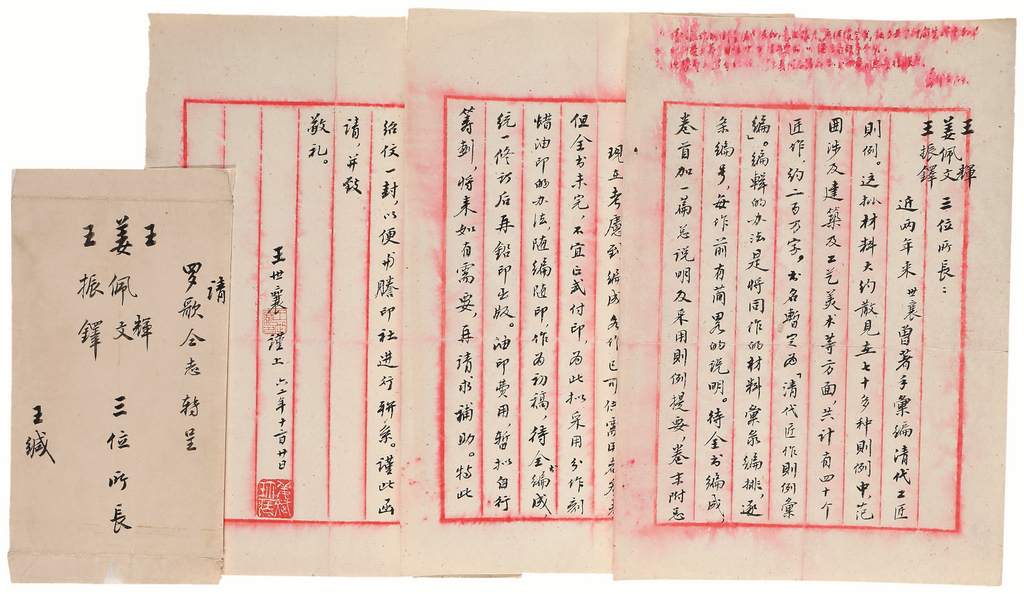 请
罗歌仝志转呈
王輝
姜佩文
王振鐸
三位所長
王缄
王輝
姜佩文
王振鐸
三位所長:
近两年来世襄曾著手彙编清代工匠
則例。这批材料大约散見在七十多种則例中,范
囲涉及建築及工艺美术等方面,共计有四十个
匠作,约二百万字,书名暫定为「清代匠作則例彙
编」。编輯的办法是将同作的材料彙集编排,逐
条编号,每作前有簡畧的说明。待全书编成,
卷首加一篇总说明及采用則例提要,卷末附总
现在考慮到编成各作已可供需用者
但全书未完,不宜正式付印,为此拟采用分作刻
蜡油印的办法,随编随印,作为初稿,待全书编成,
统一修訂后再鉛印出版。油印费用,暫拟自行
筹劃,将来如有需要,再请求補助。特此
绍伩一封,以便与誊印社进行联系。謹此函
请,并致
敬礼。
王世襄 謹上 六二年 廿日